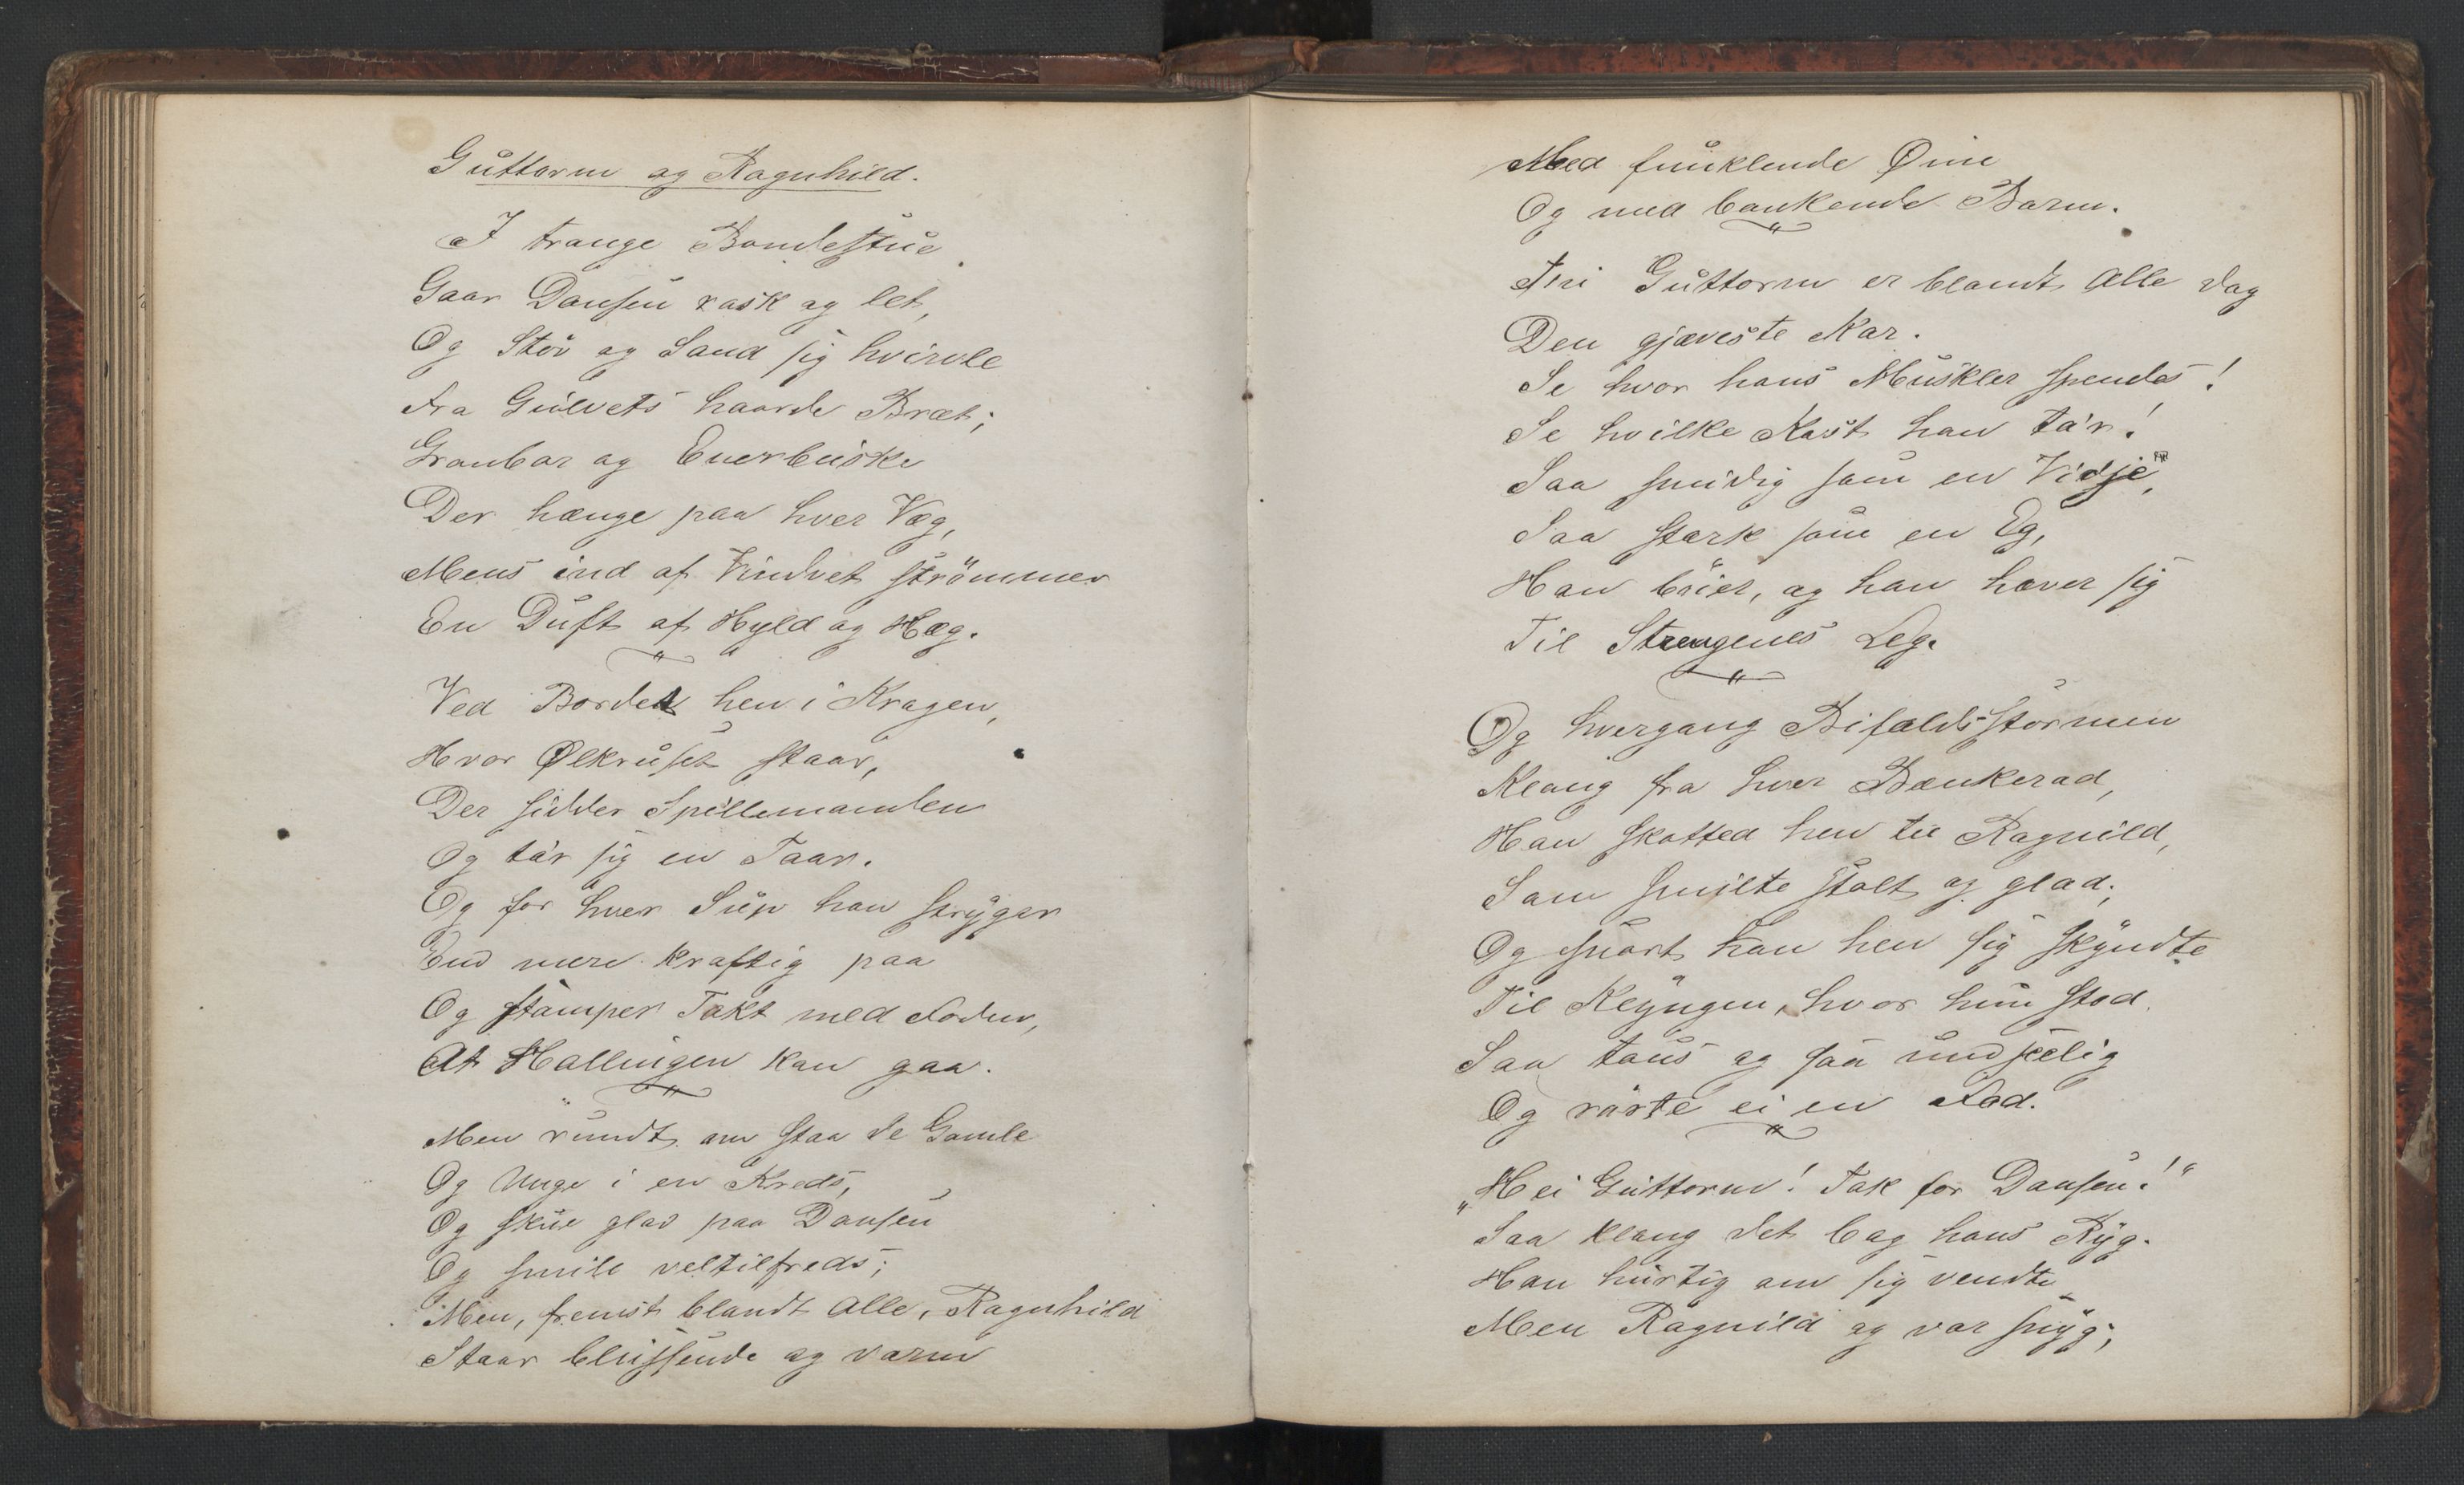 Guttorm og Ragnhild.
I trange Bondestue
Gaar Dansen rask og let,
Og Støv og Sand sig hvirvle
Fra Gulvets haarde Bræt;
Granbar og Enerbuske
Der hænge paa hver Væg,
Mens ind af Vinduet strömmer
En Duft af Hyld og Hæg.
Ved Bordet hen i Kragen,
Hvor Ølkruset staar,
Der sidder Spillemanden
Og ta'r sig en Taar.
Og for hver Sup han stryger
End mere kraftig paa
Og stamper Takt med Foden,
At Hallingen kan gaa.
Men rundt om staa de Gamle
Og Unge i en Kreds,
Og skue glad paa Dansen
Og smile veltilfreds;
Men, fremst blandt Alle, Ragnhild
Staar blussende og varm
Med funklende Øine
Og med bankende Barm.
Thi Guttorm er blandt Alle dog
Den gjæveste Kar.
Se hvor hans Muskler spendes!
Se hvilke Kast han ta'r!
Saa smidig som en Vidje,
Saa stærk som en Eg,
Han bøier, og han hæver sig
Til Strengenes Leg.
Og hvergang Bifaldsstormen
Klang fra hver Bænkerad,
Han skotted hen til Ragnild,
Som smilte stolt og glad;
Og snart han hen sig skyndte
Til Klyngen, hvor hun stod
Saa taus og saa undseelig
Og rørte ei en Fod.
„Hei Guttorm! Tak for Dansen!“
Saa klang det bag hans Ryg.
Han hurtig om sig vendte
Men Ragnild og var snyg;